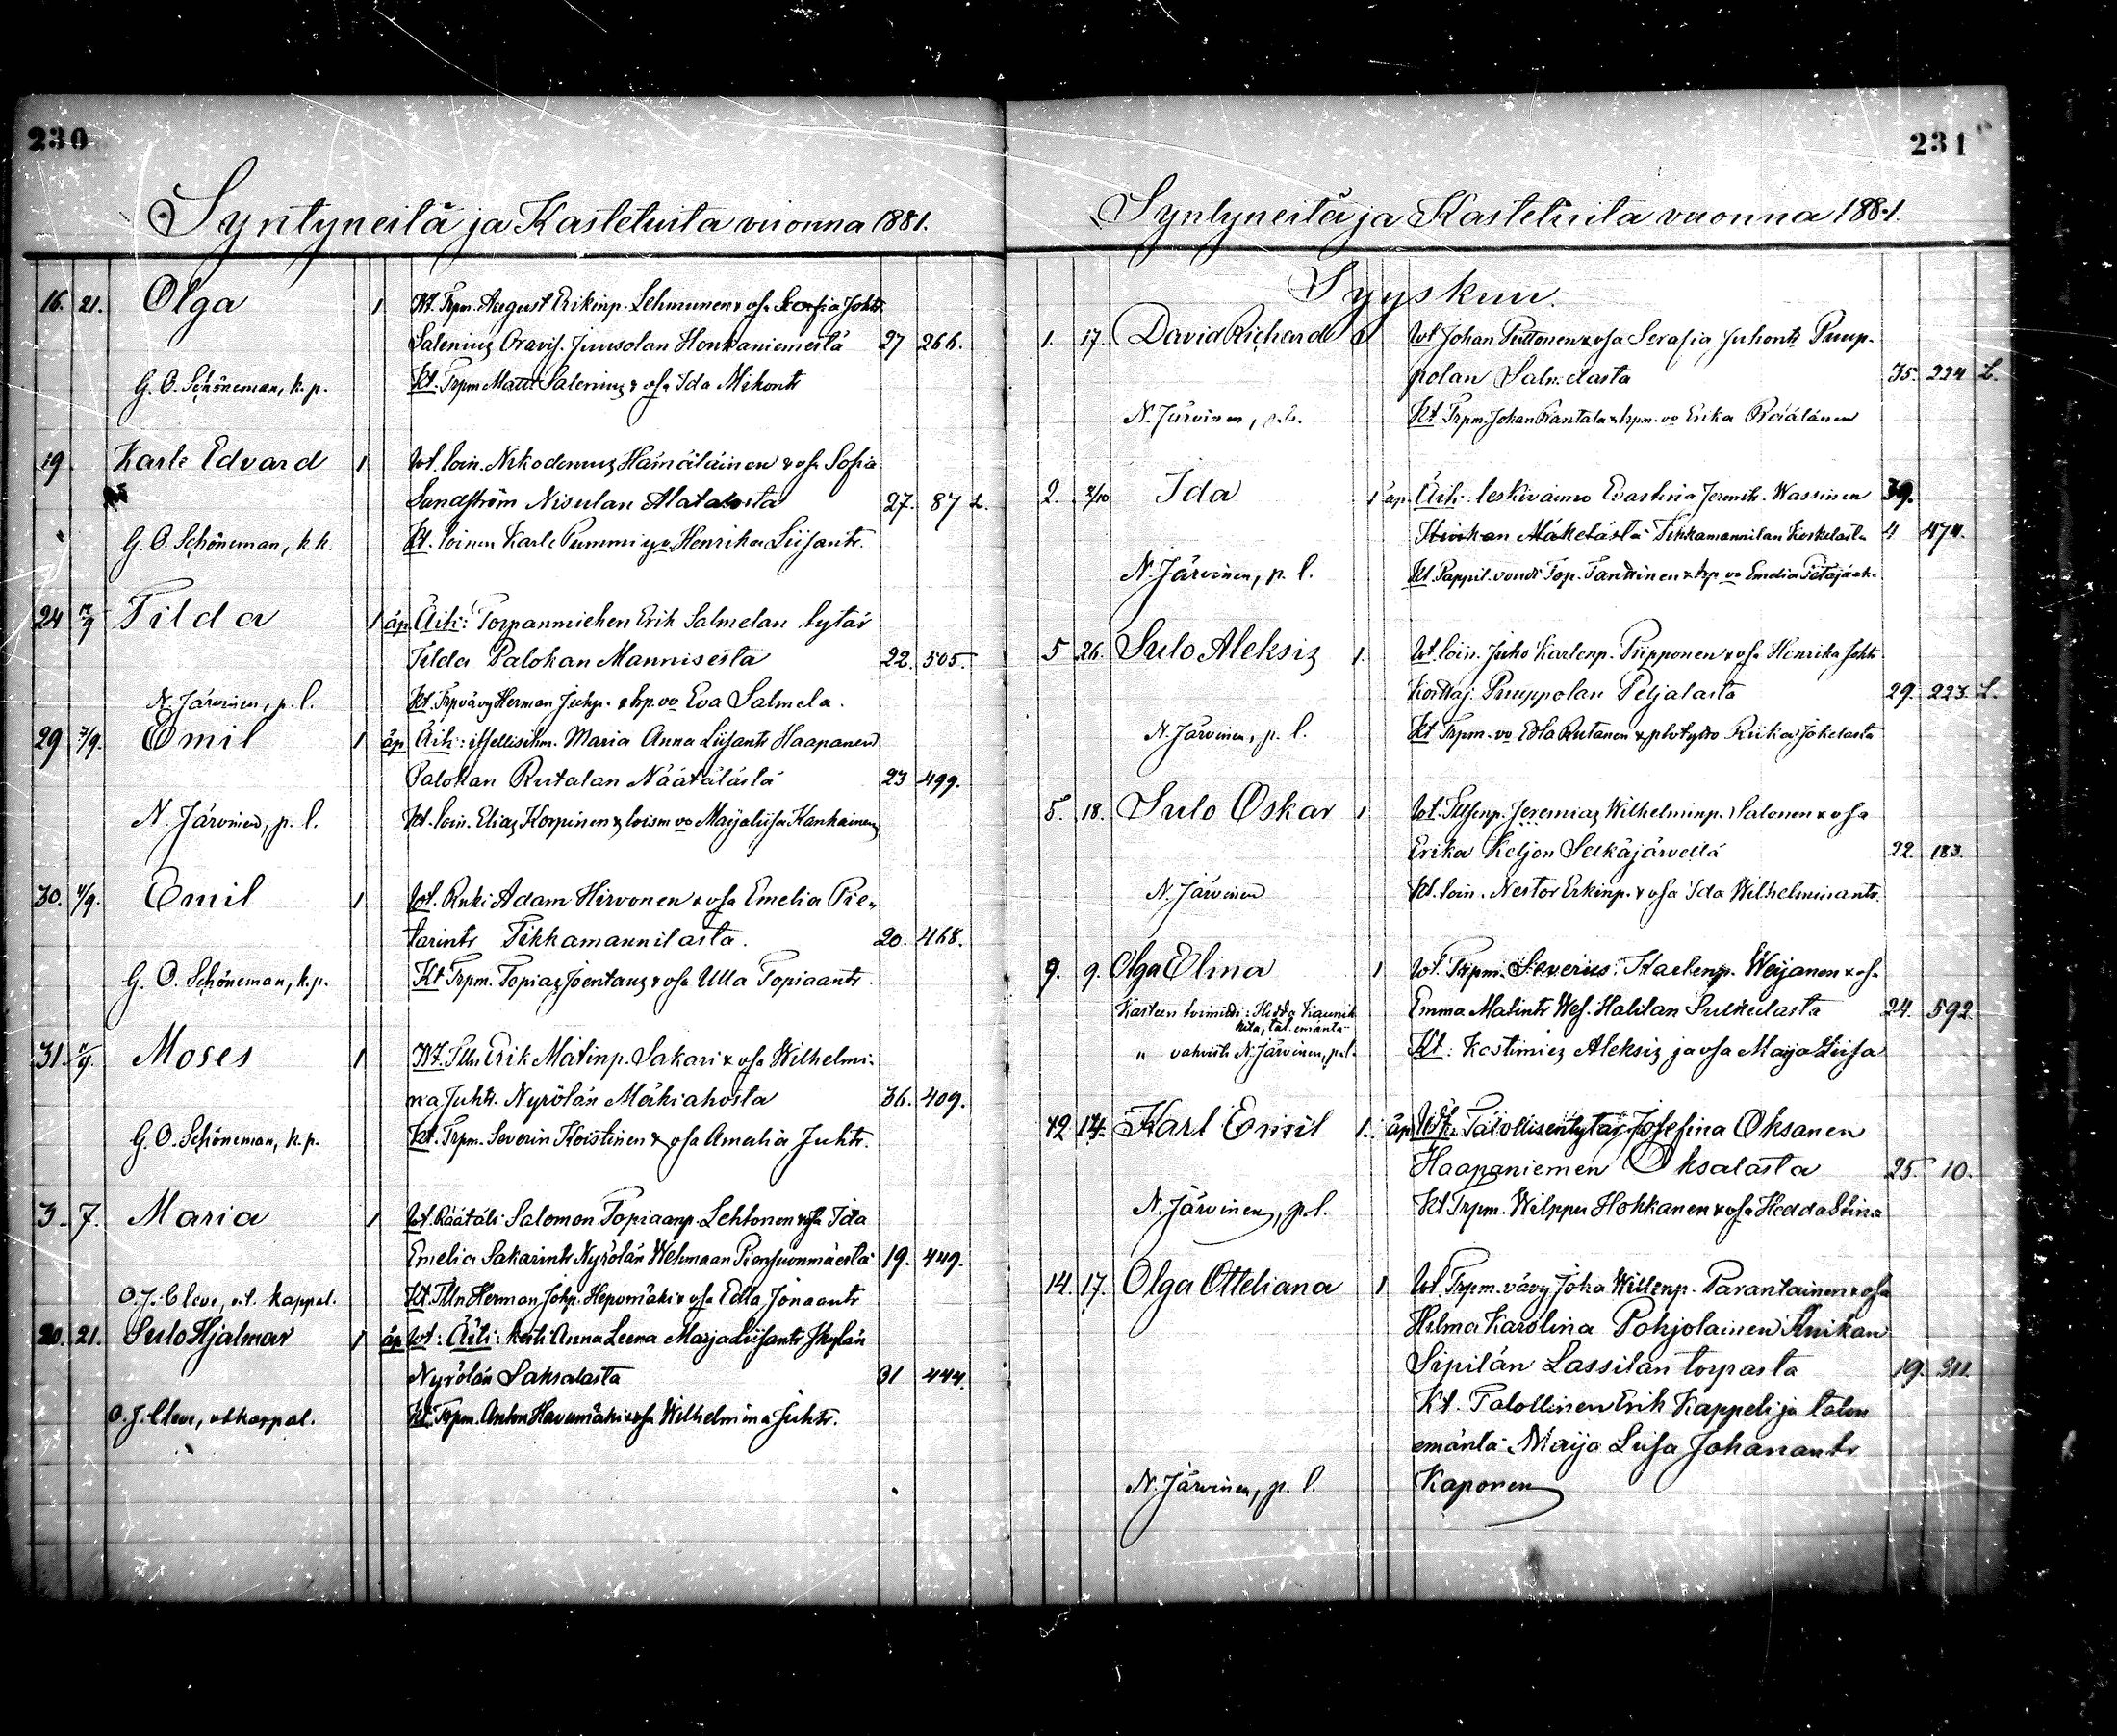 230
Syntyneitä ja Kastetuita vuonna 1881.
16. 21. Olga 1 Wt. Trpm. August Erikinp. Lehmunen & vsa Serafia Joht.
Salenius Oravis. Juusolan Honkaniemestä 27 266.
G. O. Schöneman, k. p. Kt. Trpm Matti Salenius & vsa Ida Mikontr
19. Karle Edvard 1 Wt. loin. Nikodemus Hämäläinen & vsa Sofia
Sandström Nisulan Alatalosta 27. 87 L.
G. O. Schöneman, k. k. Kt. loinen Karle Pummi ja Henrika Liisantr.
24 Tilda 1 äp. Äiti: Torpanmiehen Erik Salmelan tytär
Tilda Palokan Mannisesta 22. 505.
N. Järvinen, p. l. Kt. Trpvävy Herman Juhp. & trp. vo Eva Salmela.
29 7/9. Emil 1 äp Äiti: itsellisehm. Maria Anna Liisantr Haapanen
Palokan Rutalan Näätälästä 23 499.
N. Järvinen, p. l. Kt. loin. Elias Korpinen & loism vo Maijaliisa Kankainen
30. 4/9. Emil 1 Wt. Ruki Adam Hirvonen & vsa Emelia Pie-
tarintr Tikkamannilasta. 20. 468.
G. O. Schöneman, k. p. Kt Trpm. Topias Joentaus & vsa Ulla Topiaantr.
31. Moses 1 Wt. Tlln Erik Matinp. Sakari & vsa Wilhelmi-
na Juhtr. Nyrölän Mäkiahosta 36. 409.
G. O. Schöneman, k. p. Kt. Trpm. Severin Koistinen & vsa Amalia Juhtr.
3. 7. Maria 1 Wt. Räätäli Salomon Topiaanp. Lehtonen & vsa Ida
Emelia Sakarintr Nyrölän Wehmaan Piensuonmäestä 19. 449.
O. J. Cleve, v.t. kappal. Kt. Tlln Herman Johp. Hepomäki & vsa Edla Jonaantr
20. 21. Sulo Hjalmar 1 äp Wt: Äiti: Anna Leena Marja Liisantr
Nyrölän Saksalasta 31 444.
O. J. Cleve, vt kappal. Kt. Trpm. Anton Havumäki & vsa Wilhelmina Juhtr.
231
Syntyneitä ja Kastetuita vuonna 1881.
Syyskuu.
1. 17. David Richard 1 Wt Johan Puttonen & vsa Serafia Juhontr Puup-
polan Salmelasta 35. 224 L.
N. Järvinen, p. l. Kt Trpm. Johan Rantala & trpm. vo Erika Pöälänen
2. 2/10 Ida 1 äp. Äiti: leskivaimo Evastina Jeremtr. Wassinen 39.
Mäkelästä Tikkamannilan Koskelasta 4 474.
N. Järvinen, p. l. Kt. Pappil. vouti Top. Tanttinen & trp vo Emelia Petäjäak.
5 26. Sulo Aleksis 1 Wt loin. Juho Karlenp. Piipponen & vsa Henrika Joht
Korttaj. Puuppolan Peljalasta 29. 223 L.
N. Järvinen, p. l. Kt Trpm. vo Edla Rutanen & Riika Jokelasta
5. 18. Sulo Oskar 1. Wt. Itsenp. Jeremias Wilhelminp. Salonen & vsa
Erika Keljon Selkäjärvellä 22. 183.
N. Järvinen Kt. loin. Nestor Erkinp. & vsa Ida Wilhelmiinantr.
9. 9. Olga Elina 1 Wt. Trpm. Severius Kaelenp. Weijanen & vsa
Kasteen toimitti: Hedda Kaunik- Emma Matintr Wes. Halilan Sulkulasta 24. 592
kita, tal. emäntä
" vahvisti N. Järvinen, p. l. Kt: Kastimies Aleksis ja vsa Maija Liisa
12 14. Karl Emil 1. äp Talollisentytär Josefina Oksanen
Haapaniemen Oksalasta 25. 10.
N. Järvinen, p. l. Kt Trpm. Wilppu Hokkanen & vsa Hedda Stina
14. 17. Olga Otteliana 1 Wt Trpm. vävy Joka Willenp. Parantainen & vsa
Hilma Karolina Pohjolainen
Sipilän Lassilan torpasta 19. 311.
Kt. Talollinen Erik Kappeli ja talon
emäntä Maija Liisa Johanantr
N. Järvinen, p. l. Kaponen